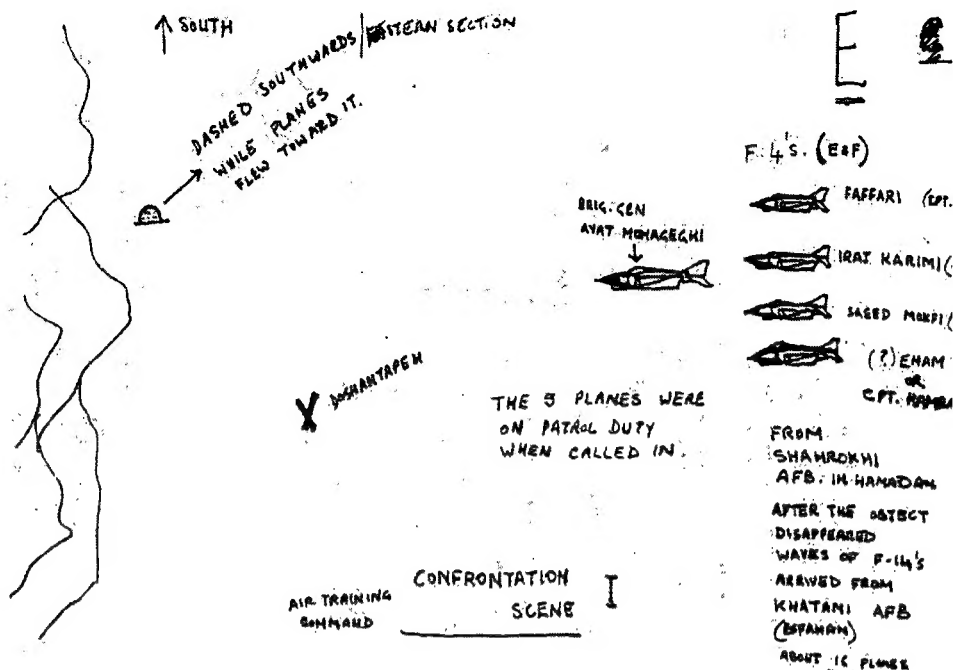 SOUTH
DASHED SOUTHWARDS / EASTERN SECTION
WHILE PLANES
FLEW TOWARD IT.
E
F-4's. (E&F)
FAFFARI (CPT.
BRIG. GEN
AYAT MOHAGEGHI
IRAJ KARIMI (
SAEED MOKRI (
(?) EHAM
OR
CPT.
DOSHANTAPEH
THE 5 PLANES WERE
ON PATROL DUTY
WHEN CALLED IN.
FROM
SHAHROKHI
AFB. IN HAMADAN
AFTER THE OBJECT
DISAPPEARED
WAVES OF F-14's
ARRIVED FROM
KHATAMI AFB
(ESFAHAN)
ABOUT 16 PLANES
AIR TRAINING
COMMAND
CONFRONTATION
SCENE
I